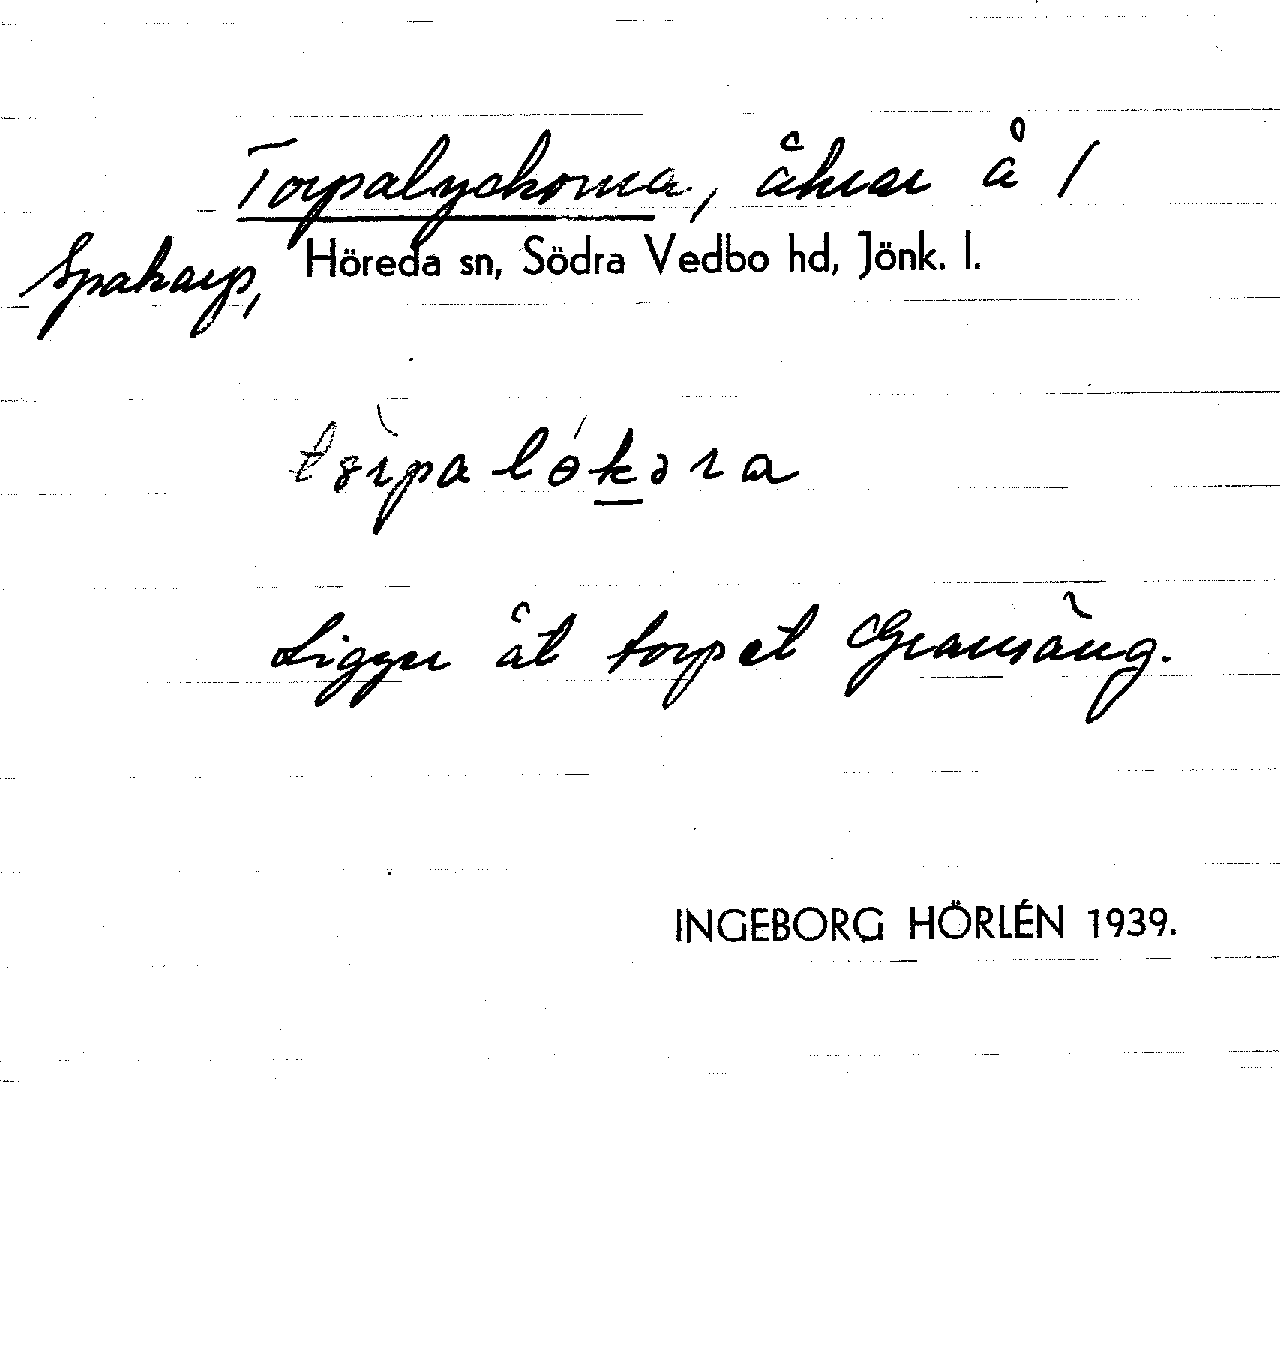 Torpalyckorna, åkrar å /
Spakarp, Höreda sn, Södra Vedbo hd, Jönk. l.
Ligger åt torpet Gransäng.
INGEBORG HÖRLÉN 1939.